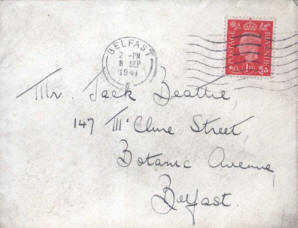 BELFAST
2 - PM
8 SEP
1941
POSTAGE REVENUE
Mr. Jack Beattie
147 McClure Street
Botanic Avenue,
Belfast